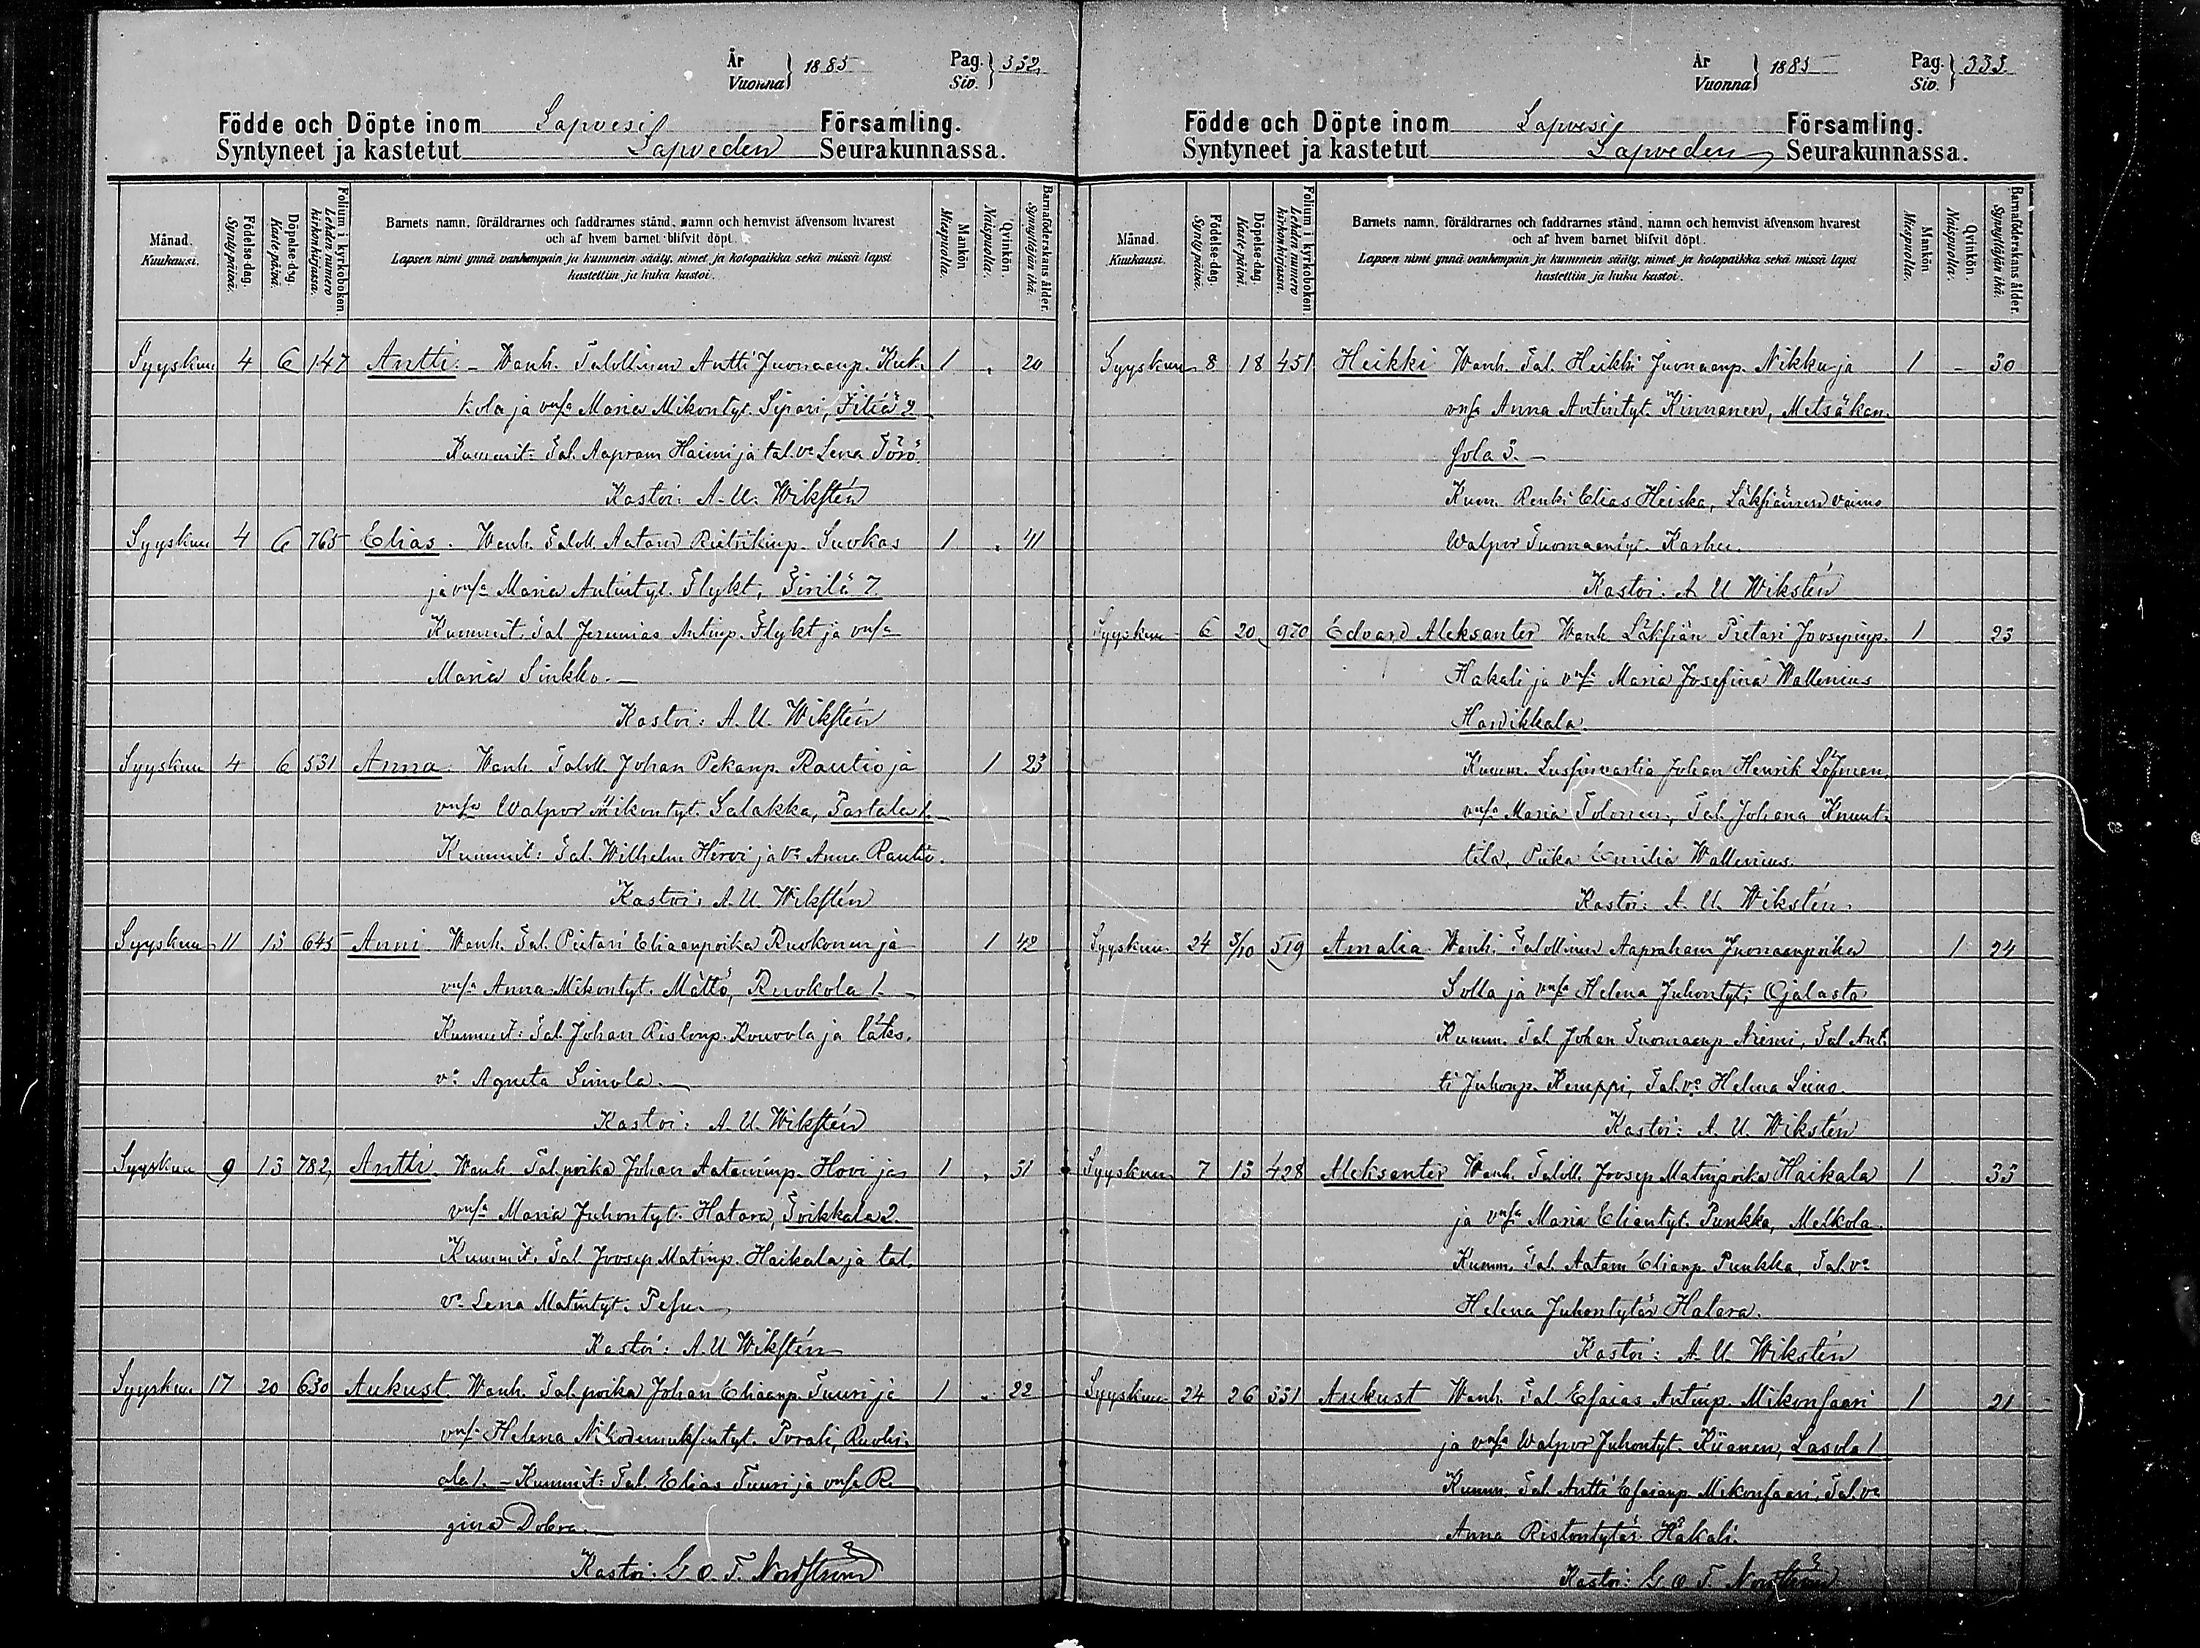 År
Vuonna } 1885 Pag.
Siv. } 332
Födde och Döpte inom Lapvesi Församling.
Syntyneet ja kastetut Lapveden Seurakunnassa.
Månad.
Kuukausi.
Födelse-dag.
Syntypäivä.
Döpelse-dag.
Kastepäivä.
Folium i kyrkoboken.
Lehden numero
kirkonkirjassa.
Barnets namn, föräldrarnes och faddrarnes stånd, namn och hemvist äfvensom hvarest
och af hvem barnet blifvit döpt.
Lapsen nimi ynnä vanhempain ja kummein sääty, nimet ja kotopaikka sekä missä lapsi
kastettiin ja kuka kastoi.
Mankön
Miespuolia.
Qvinkön.
Naispuolia.
Barnaföderskans ålder.
Synnyttäjän ikä.
Syyskuu 4 6 147 Antti. - Wanh. Talollinen Antti Juonaanp. Kuk- 1 . 20
kola ja vnsa Maria Mikontyt. Sipari, Iitiä 2
Kummit: Tal. Aapram Haimi ja tal. va Lena Törö.
Kastoi: A. U. Wikstén
Syyskuu 4 6 765 Elias. Wanh. Taloll. Aatami Rietrikinp. Suokas 1 . 41
ja vnsa Maria Antintyt. Flykt, Jirilä 7.
Kummit. Tal Jeremias Antinp. Flykt ja vnsa
Maria Sinkko. -
Kastoi: A. U. Wikstén
Syyskuu 4 6 531 Anna Wanh. Taloll. Johan Pekanp. Rautio ja 1 23
vnsa Walpor Mikontyt. Salakka, Partala 1.
Kummit: Tal. Wilhelm Hirvi ja va Anna Rautio.
Kastoi: A. U. Wikstén
Syyskuu 11 13 645 Anni Wanh. Tal. Pietari Eliaanpoika Ruokonen ja 1 42
vnsa Anna Mikontyt. Mättö, Ruokola 1.
Kummit: Tal. Johan Ristonp. Kouvola ja läks.
va Agneta Simola. -
Kastoi: A. U. Wikstén
Syyskuu 9 13 782 Antti. Wanh. Tal. poika Johan Aataminp. Hovi ja 1 . 31
vnsa Maria Juhontyt. Hatara, Toikkala 2.
Kummit. Tal. Joosep Matinp. Haikala ja tal.
va Lena Matintyt. Pesu.
Kastoi: A. U. Wikstén
Syyskuu 17 20 630 Aukust. Wanh. Tal. poika Johan Eliaanp. Tuuri ja 1 . 22
vnsa Helena Nikodemuksentyt. Porali, Ruohi-
ala 1. - Kummit: Tal. Elias Tuuri ja vnsa Re-
gina Dobra. -
Kastoi: G. O. T. Nordström
År
Vuonna } 1885 Pag.
Siv. } 333
Födde och Döpte inom Lapvesi Församling.
Syntyneet ja kastetut Lapveden Seurakunnassa.
Månad.
Kuukausi.
Födelse-dag.
Syntypäivä.
Döpelse-dag.
Kastepäivä.
Folium i kyrkoboken.
Lehden numero
kirkonkirjassa.
Barnets namn, föräldrarnes och faddrarnes stånd, namn och hemvist äfvensom hvarest
och af hvem barnet blifvit döpt.
Lapsen nimi ynnä vanhempain ja kummein sääty, nimet ja kotopaikka sekä missä lapsi
kastettiin ja kuka kastoi.
Mankön
Miespuolia.
Qvinkön.
Naispuolia.
Barnaföderskans ålder.
Synnyttäjän ikä.
Syyskuu 8 18 451 Heikki Wanh. Tal. Heikki Juonaanp. Nikku ja 1 - 30
vnsa Anna Antintyt. Kinnanen, Metsäkan-
sola 3. -
Kum. Renki Elias Heiska, Läksiämen vaimo
Walpor Tuomaantyt. Karhu.
Kastoi. A. U Wikstén
Syyskuu 6 20 970 Edvard Aleksanter Wanh. Läksiän Pietari Joosepinp. 1 23
Hakali ja vnsa Maria Josefina Wallenius
Hawikkala
Kumm. Lusfinvartia Johan Henrik Löfman
vnsa Maria Tolonen, Tal. Johana Knuut-
tila, Piika Emilia Wallenius.
Kastoi: A. U. Wikstén.
Syyskuu 24 3/10 519 Amalia Wanh. Talollinen Aapraham Juonaanpoika 1 24
Solla ja vnsa Helena Juhontyt. Ojalasta.
Kumm. Tal. Johan Tuomaanp. Niemi, Tal. Ant-
ti Juhonp. Kemppi, Tal. va Helena Leino.
Kastoi: A. U. Wikstén
Syyskuu 7 13 428 Aleksanter Wanh. Taloll. Joosep Matinpoika Haikala 1 33
ja vnsa Maria Eliantyt. Punkka, Melkola.
Kumm. Tal. Aatam Elianp. Punkka, Tal. va
Helena Juhontytär Hatara.
Kastoi: A. U. Wikstén
Syyskuu 24 26 331 Aukust Wanh. Tal Esaias Antinp. Mikonsaari 1 21
ja vnsa Walpor Juhontyt. Kiianen, Lasola 1
Kumm. Tal. Antti Esaianp. Mikonsaari, Tal. va
Anna Ristontytär Hakali.
Kastoi: G O T. Nordström